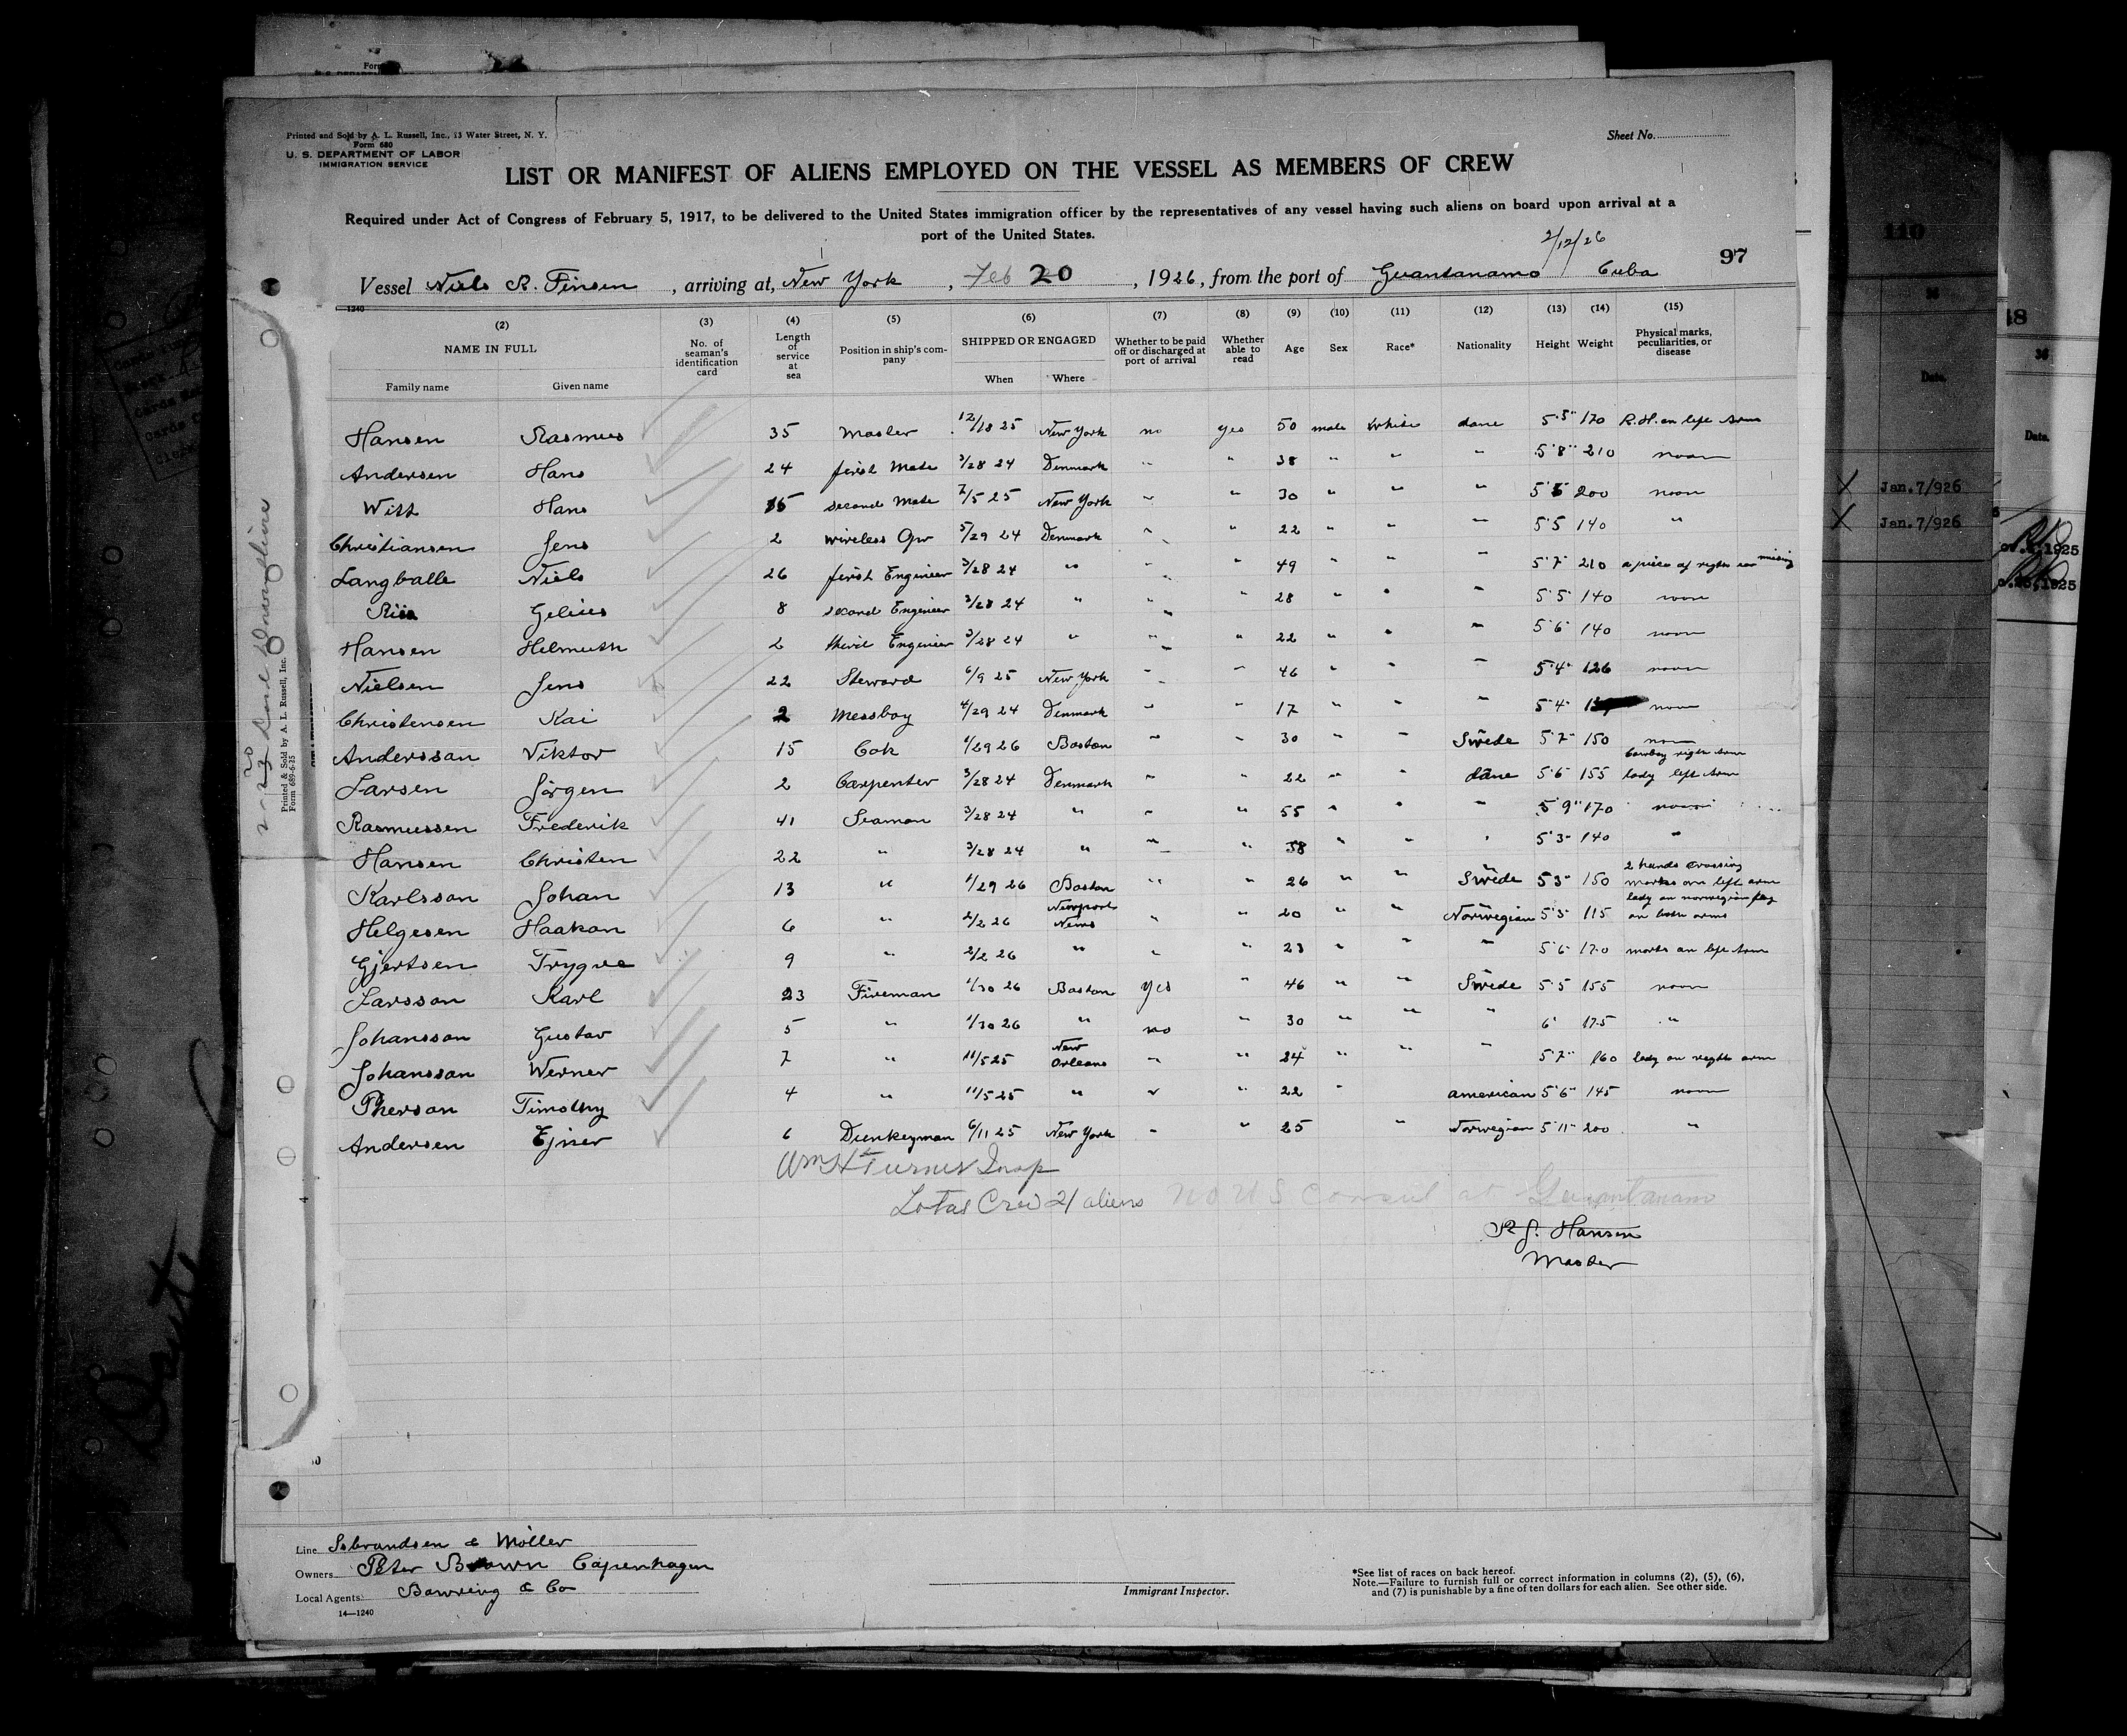 Printed and Sold by A. L. Russell, Inc., 13 Water Street, N. Y.
Form 680
U. S. DEPARTMENT OF LABOR
IMMIGRATION SERVICE
Sheet No.
LIST OR MANIFEST OF ALIENS EMPLOYED ON THE VESSEL AS MEMBERS OF CREW
Required under Act of Congress of February 5, 1917, to be delivered to the United States immigration officer by the representatives of any vessel having such aliens on board upon arrival at a
port of the United States.
2/12/26
97
Vessel Niels R. Finsen, arriving at, New York, Feb 20, 1926, from the port of Guantanamo Cuba
1240
(2) (3) (4) (5) (6) (7) (8) (9) (10) (11) (12) (13) (14) (15)
NAME IN FULL No. of seaman's identification card Length of service at sea Position in ship's company SHIPPED OR ENGAGED Whether to be paid off or discharged at port of arrival Whether able to read Age Sex Race* Nationality Height Weight Physical marks, peculiarities, or disease
Family name Given name When Where
Hansen Rasmus 35 Master 12/18 25 New York no yes 50 male White dane 5'5" 170 R.H. on left Arm
Andersen Hans 24 first Mate 3/28 24 Denmark " " 38 " " " 5'8" 210 noon
Witt Hans 15 second Mate 7/5 25 New York " " 30 " " " 5'5 200 noon
Christiansen Jens 2 wireless Opr 5/29 24 Denmark " " 22 " " " 5'5 140 "
Langballe Niels 26 first Engineer 3/28 24 " " " 49 " " " 5'7" 210 a piece of right ear missing
Riis Gelius 8 second Engineer 3/28 24 " " " 28 " " " 5'5" 140 noon
Hansen Helmuth 2 third Engineer 3/28 24 " " " 22 " " " 5'6" 140 noon
Nielsen Jens 22 Steward 6/9 25 New York " " 46 " " " 5'4" 126 noon
Christensen Kai 2 Messboy 4/29 24 Denmark " " 17 " " " 5'4" noon
Andersson Viktor 15 Cok 1/29 26 Boston " " 30 " " Swede 5'7" 150 noon
Larsen Jörgen 2 Carpenter 3/28 24 Denmark " " 22 " " dane 5'6" 155 Cowboy right Arm lady left Arm
Rasmussen Frederik 41 Seaman 3/28 24 " " " 55 " " " 5'9" 170 noon
Hansen Christen 22 " 3/28 24 " " " 38 " " " 5'3" 140 "
Karlsson Johan 13 " 1/29 26 Boston " " 26 " " Swede 5'3" 150 2 hands crossing marks on left arm
Helgesen Haakon 6 " 2/2 26 Newport News " " 20 " " Norwegian 5'5" 115 lady on norwegian flag on both arms
Gjertsen Trygve 9 " 2/2 26 " " " 23 " " " 5'6" 170 marks on left Arm
Larsson Karl 23 Fireman 1/30 26 Boston yes " 46 " " Swede 5'5 155 noon
Johansson Gustav 5 " 1/30 26 " no " 30 " " " 6' 175 "
Johansson Werner 7 " 11/5 25 New Orleans " " 24 " " " 5'7" 160 lady on right arm
Pherson Timothy 4 " 11/5 25 " " " 22 " american 5'6" 145 noon
Andersen Ejner 6 Dunkeyman 6/11 25 New York " " 25 " Norwegian 5'11" 200 "
Wm H Turner Insp
Total Crew 21 aliens No U S Consul at Guantanamo
R J. Hansen
Master
Printed & Sold by A. L. Russell, Inc.
Form 689-6-25
Line Isbrandsen & Möller
Owners Peter Brown Copenhagen
Local Agents: Bowring & Co
14—1240
Immigrant Inspector.
*See list of races on back hereof.
Note.—Failure to furnish full or correct information in columns (2), (5), (6),
and (7) is punishable by a fine of ten dollars for each alien. See other side.
110
Date.
Jan. 7/926
Jan. 7/926
48
Date.